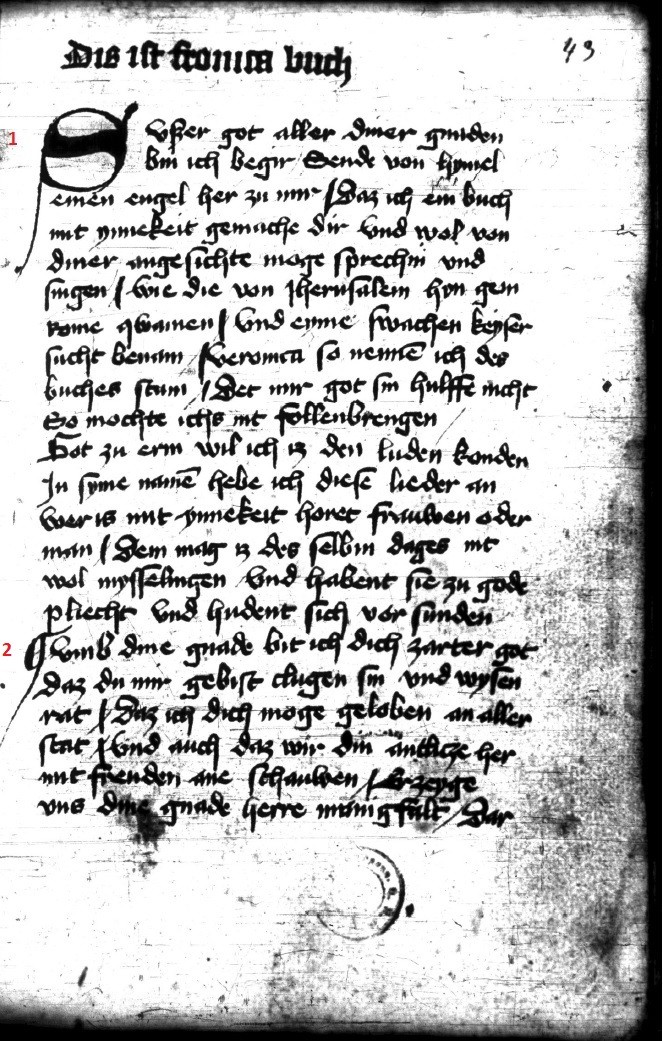 43
Dis ist fronica buch
1
Sußer got aller diner gnaden
bin ich begir Sende von hymel
einen engel her zu mir / Daz ich ein buch
mit ynnekeit gemache dir Vnd wol von
diner angesichte moge sprechin vnd
singen / wie die von Jherusalem hyn gein
rome qwamen / Vnd eynne swachen keyser
sucht benam / Veronica so nemē ich des
buches stam / Det mir got sin hulffe nicht
So mochte ichs nit follenbrengen
Got zu erin wil ich iz den luden konden
In syme namē hebe ich diese lieder an
wer is mit ynnekeit horet frauwen oder
man / Dem mag iz des selbin dages nit
wol mysselingen Vnd habent sie zu gode
pliecht vnd hudent sich vor sunden
2
Vmb dine gnade bit ich dich zarter got
daz du mir gebist clugen sin vnd wysen
rat / Daz ich dich moge geloben an aller
stat / Vnd auch daz wir din antlicze her
mit freuden ane schauwen / Erzeyge
vns dine gnade herre manigfalt / Dar